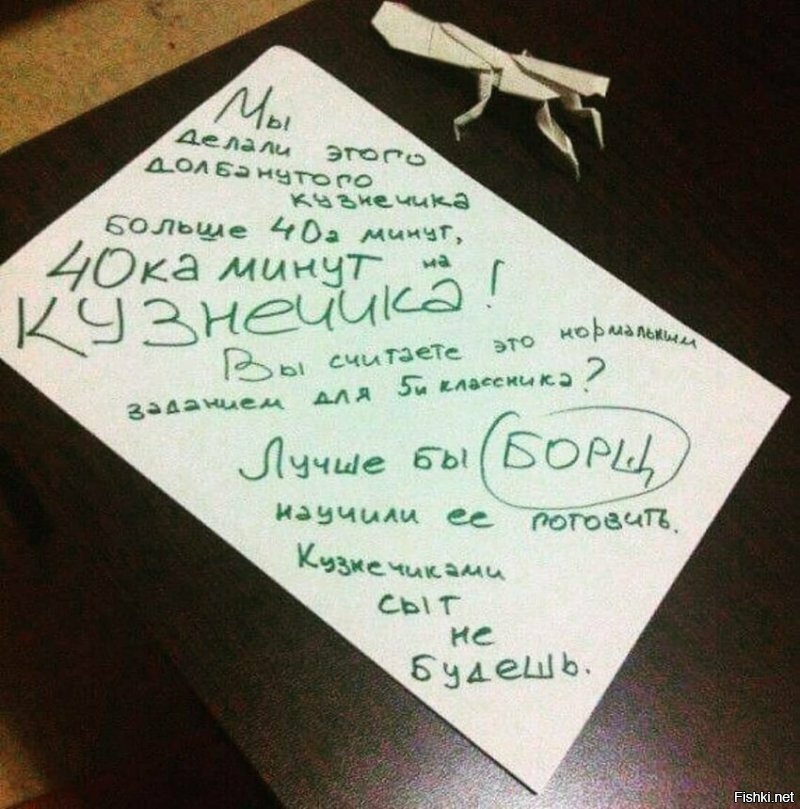 Мы
делали этого
долбанутого
кузнечика
больше 40а минут,
40ка минут на
кузнечика!
Вы считаете это нормальным
заданием для 5и классника?
Лучше бы БОРЩ
научили ее готовить.
Кузнечиками
сыт
не
будешь.
Fishki.net